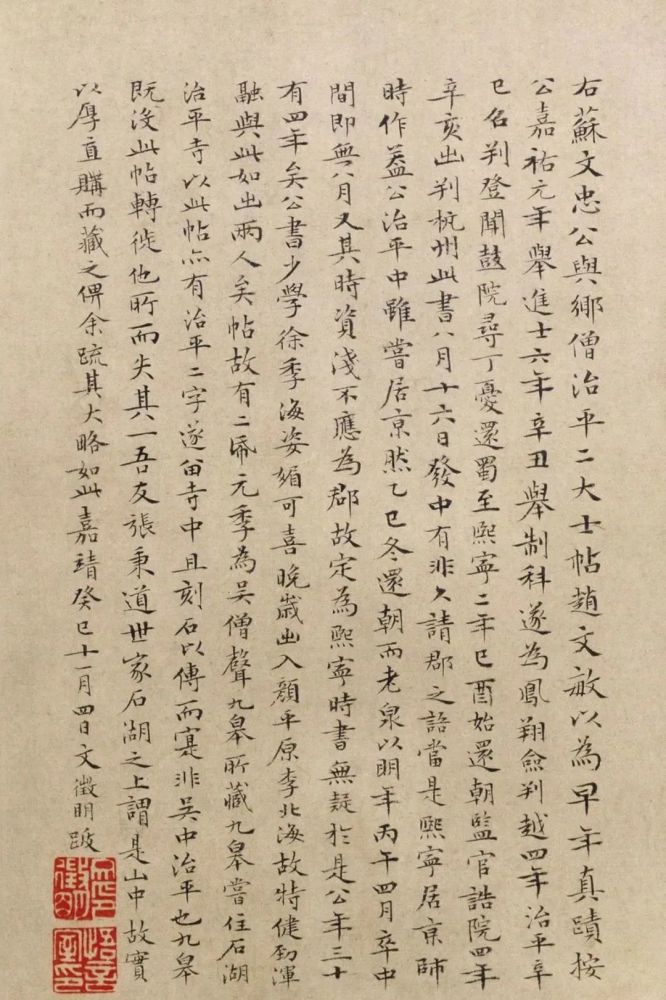 右蘇文忠公與鄉僧治平二大士帖趙文敏以為早年真蹟按
公嘉祐元年舉進士六年辛丑舉制科遂為鳳翔僉判越四年治平辛
巳召判登聞鼓院尋丁憂還蜀至熙寧二年己酉始還朝監官誥院四年
辛亥出判杭州此書八月十六日發中有非久請郡之語當是熙寧居京師
時作蓋公治平中雖嘗居京然乙巳冬還朝而老泉以明年丙午四月卒中
間即無八月又其時資淺不應為郡故定為熙寧時書無疑於是公年三十
有四年矣公書少學徐季海姿媚可喜晚歲出入顏平原李北海故特健勁渾
融與此如出兩人矣帖故有二帋元季為吳僧聲九皋所藏九皋嘗住石湖
治平寺以此帖亦有治平二字遂留寺中且刻石以傳而寔非吳中治平也九皋
既沒此帖轉徙他所而失其一吾友張秉道世家石湖之上謂是山中故實
以厚直購而藏之俾余疏其大略如此嘉靖癸巳十一月四日文徵明跋
徵明